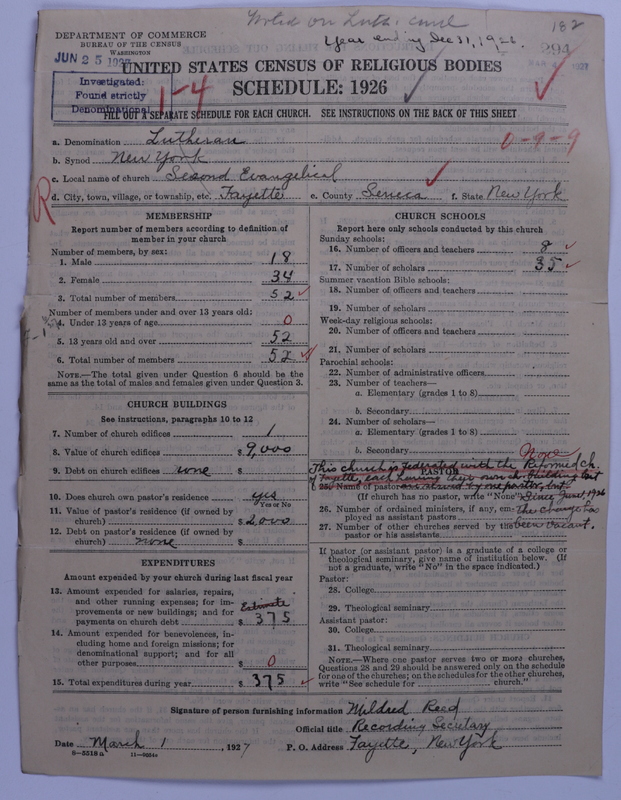 Noted on Luth. card
182
DEPARTMENT OF COMMERCE
BUREAU OF THE CENSUS
WASHINGTON
Year ending Dec 31, 1926
294
JUN 25 1927
1927
UNITED STATES CENSUS OF RELIGIOUS BODIES
Investigated:
Found strictly
Denominational
1-4
SCHEDULE: 1926
FILL OUT A SEPARATE SCHEDULE FOR EACH CHURCH. SEE INSTRUCTIONS ON THE BACK OF THIS SHEET
a. Denomination Lutheran
0-9-9
b. Synod New York
c. Local name of church Second Evangelical
R
d. City, town, village, or township, etc. Fayette e. County Seneca f. State New York
MEMBERSHIP
Report number of members according to definition of member in your church
Number of members, by sex:
1. Male 18
2. Female 34
3. Total number of members 52
Number of members under and over 13 years old:
4. Under 13 years of age 0
5. 13 years old and over 52
6. Total number of members 52
NOTE.—The total given under Question 6 should be
same as the total of males and females given under Question 3.
CHURCH BUILDINGS
See instructions, paragraphs 10 to 12
7. Number of church edifices 1
8. Value of church edifices $ 9,000
9. Debt on church edifices none $
10. Does church own pastor's residence yes
Yes or No
11. Value of pastor's residence (if owned by
church) $ 2,000
12. Debt on pastor's residence (if owned by
church) none $
EXPENDITURES
Amount expended by your church during last fiscal year
13. Amount expended for salaries, repairs,
and other running expenses; for im-
provements or new buildings; and for
payments on church debt $ Estimate 375
14. Amount expended for benevolences, in-
cluding home and foreign missions; for
denominational support; and for all
other purposes $ 0
15. Total expenditures during year $ 375
CHURCH SCHOOLS
Report here only schools conducted by this church
Sunday schools:
16. Number of officers and teachers 8
17. Number of scholars 35
Summer vacation Bible schools:
18. Number of officers and teachers
19. Number of scholars
Week-day religious schools:
20. Number of officers and teachers
21. Number of scholars
Parochial schools:
22. Number of administrative officers
23. Number of teachers—
a. Elementary (grades 1 to 8)
b. Secondary
24. Number of scholars—
a. Elementary (grades 1 to 8)
b. Secondary
None
This church is federated with the Reformed Ch.
PASTOR
of Fayette, each having their own ch. building but
25. Name of pastor are served by one pastor, but
(If church has no pastor, write "None") Since June 1, 1926
26. Number of ordained ministers, if any, em-
ployed as assistant pastors the charge has
27. Number of other churches served by this
pastor or his assistants been vacant.
If pastor (or assistant pastor) is a graduate of a college or
theological seminary, give name of institution below. (If
not a graduate, write "No" in the space indicated.)
Pastor:
28. College
29. Theological seminary
Assistant pastor:
30. College
31. Theological seminary
NOTE.—Where one pastor serves two or more churches,
Questions 28 and 29 should be answered only on the schedule
for one of the churches; on the schedules for the other churches,
write "See schedule for church."
Signature of person furnishing information Mildred Reed
Official title Recording Secretary
Date March 1, 1927 P. O. Address Fayette, New York
8—5518a 11—9654c